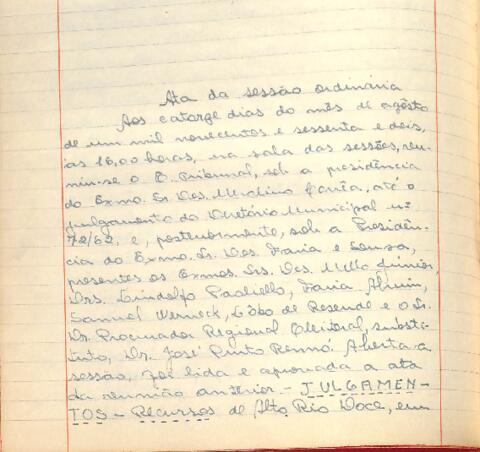 Ata da sessão ordinária
Aos catorze dias do mês de agôsto
de um mil novecentos e sessenta e dois,
às 16,00 horas, na sala das sessões, reu-
niu-se o E. Tribunal, sob a presidência
do Exmo. Sr. Des. Merolino Corrêa, até o
julgamento do Diretório Municipal nº
72/62, e, posteriormente, sob a Presidên-
cia do Exmo. Sr. Des. Faria e Sousa,
presentes os Exmos. Srs. Des. Mello Júnior,
Drs. Lindolfo Paoliello, Faria Alvim,
Samuel Werneck, Edbo de Resende e o Sr.
Dr. Procurador Regional Eleitoral, substi-
tuto, Dr. José Pinto Rennó. Aberta a
sessão, foi lida e aprovada a ata
da reunião anterior. - JULGAMEN-
TOS - Recursos de Alto Rio Doce, em